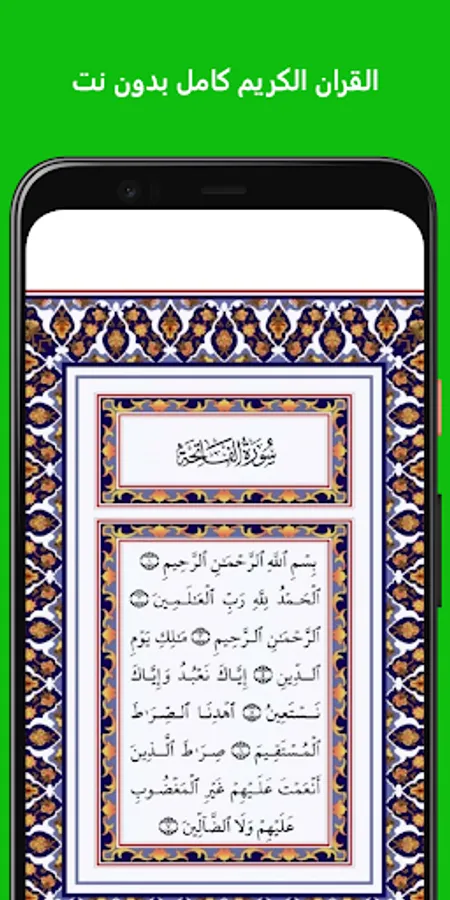 القران الكريم كامل بدون نت
سُورَةُ الفَاتِحَةِ
بِسْمِ ٱللَّهِ ٱلرَّحْمَـٰنِ ٱلرَّحِيمِ ۝١
ٱلْحَمْدُ لِلَّهِ رَبِّ ٱلْعَـٰلَمِينَ ۝٢
ٱلرَّحْمَـٰنِ ٱلرَّحِيمِ ۝٣ مَـٰلِكِ يَوْمِ
ٱلدِّينِ ۝٤ إِيَّاكَ نَعْبُدُ وَإِيَّاكَ
نَسْتَعِينُ ۝٥ ٱهْدِنَا ٱلصِّرَٰطَ
ٱلْمُسْتَقِيمَ ۝٦ صِرَٰطَ ٱلَّذِينَ
أَنْعَمْتَ عَلَيْهِمْ غَيْرِ ٱلْمَغْضُوبِ
عَلَيْهِمْ وَلَا ٱلضَّآلِّينَ ۝٧